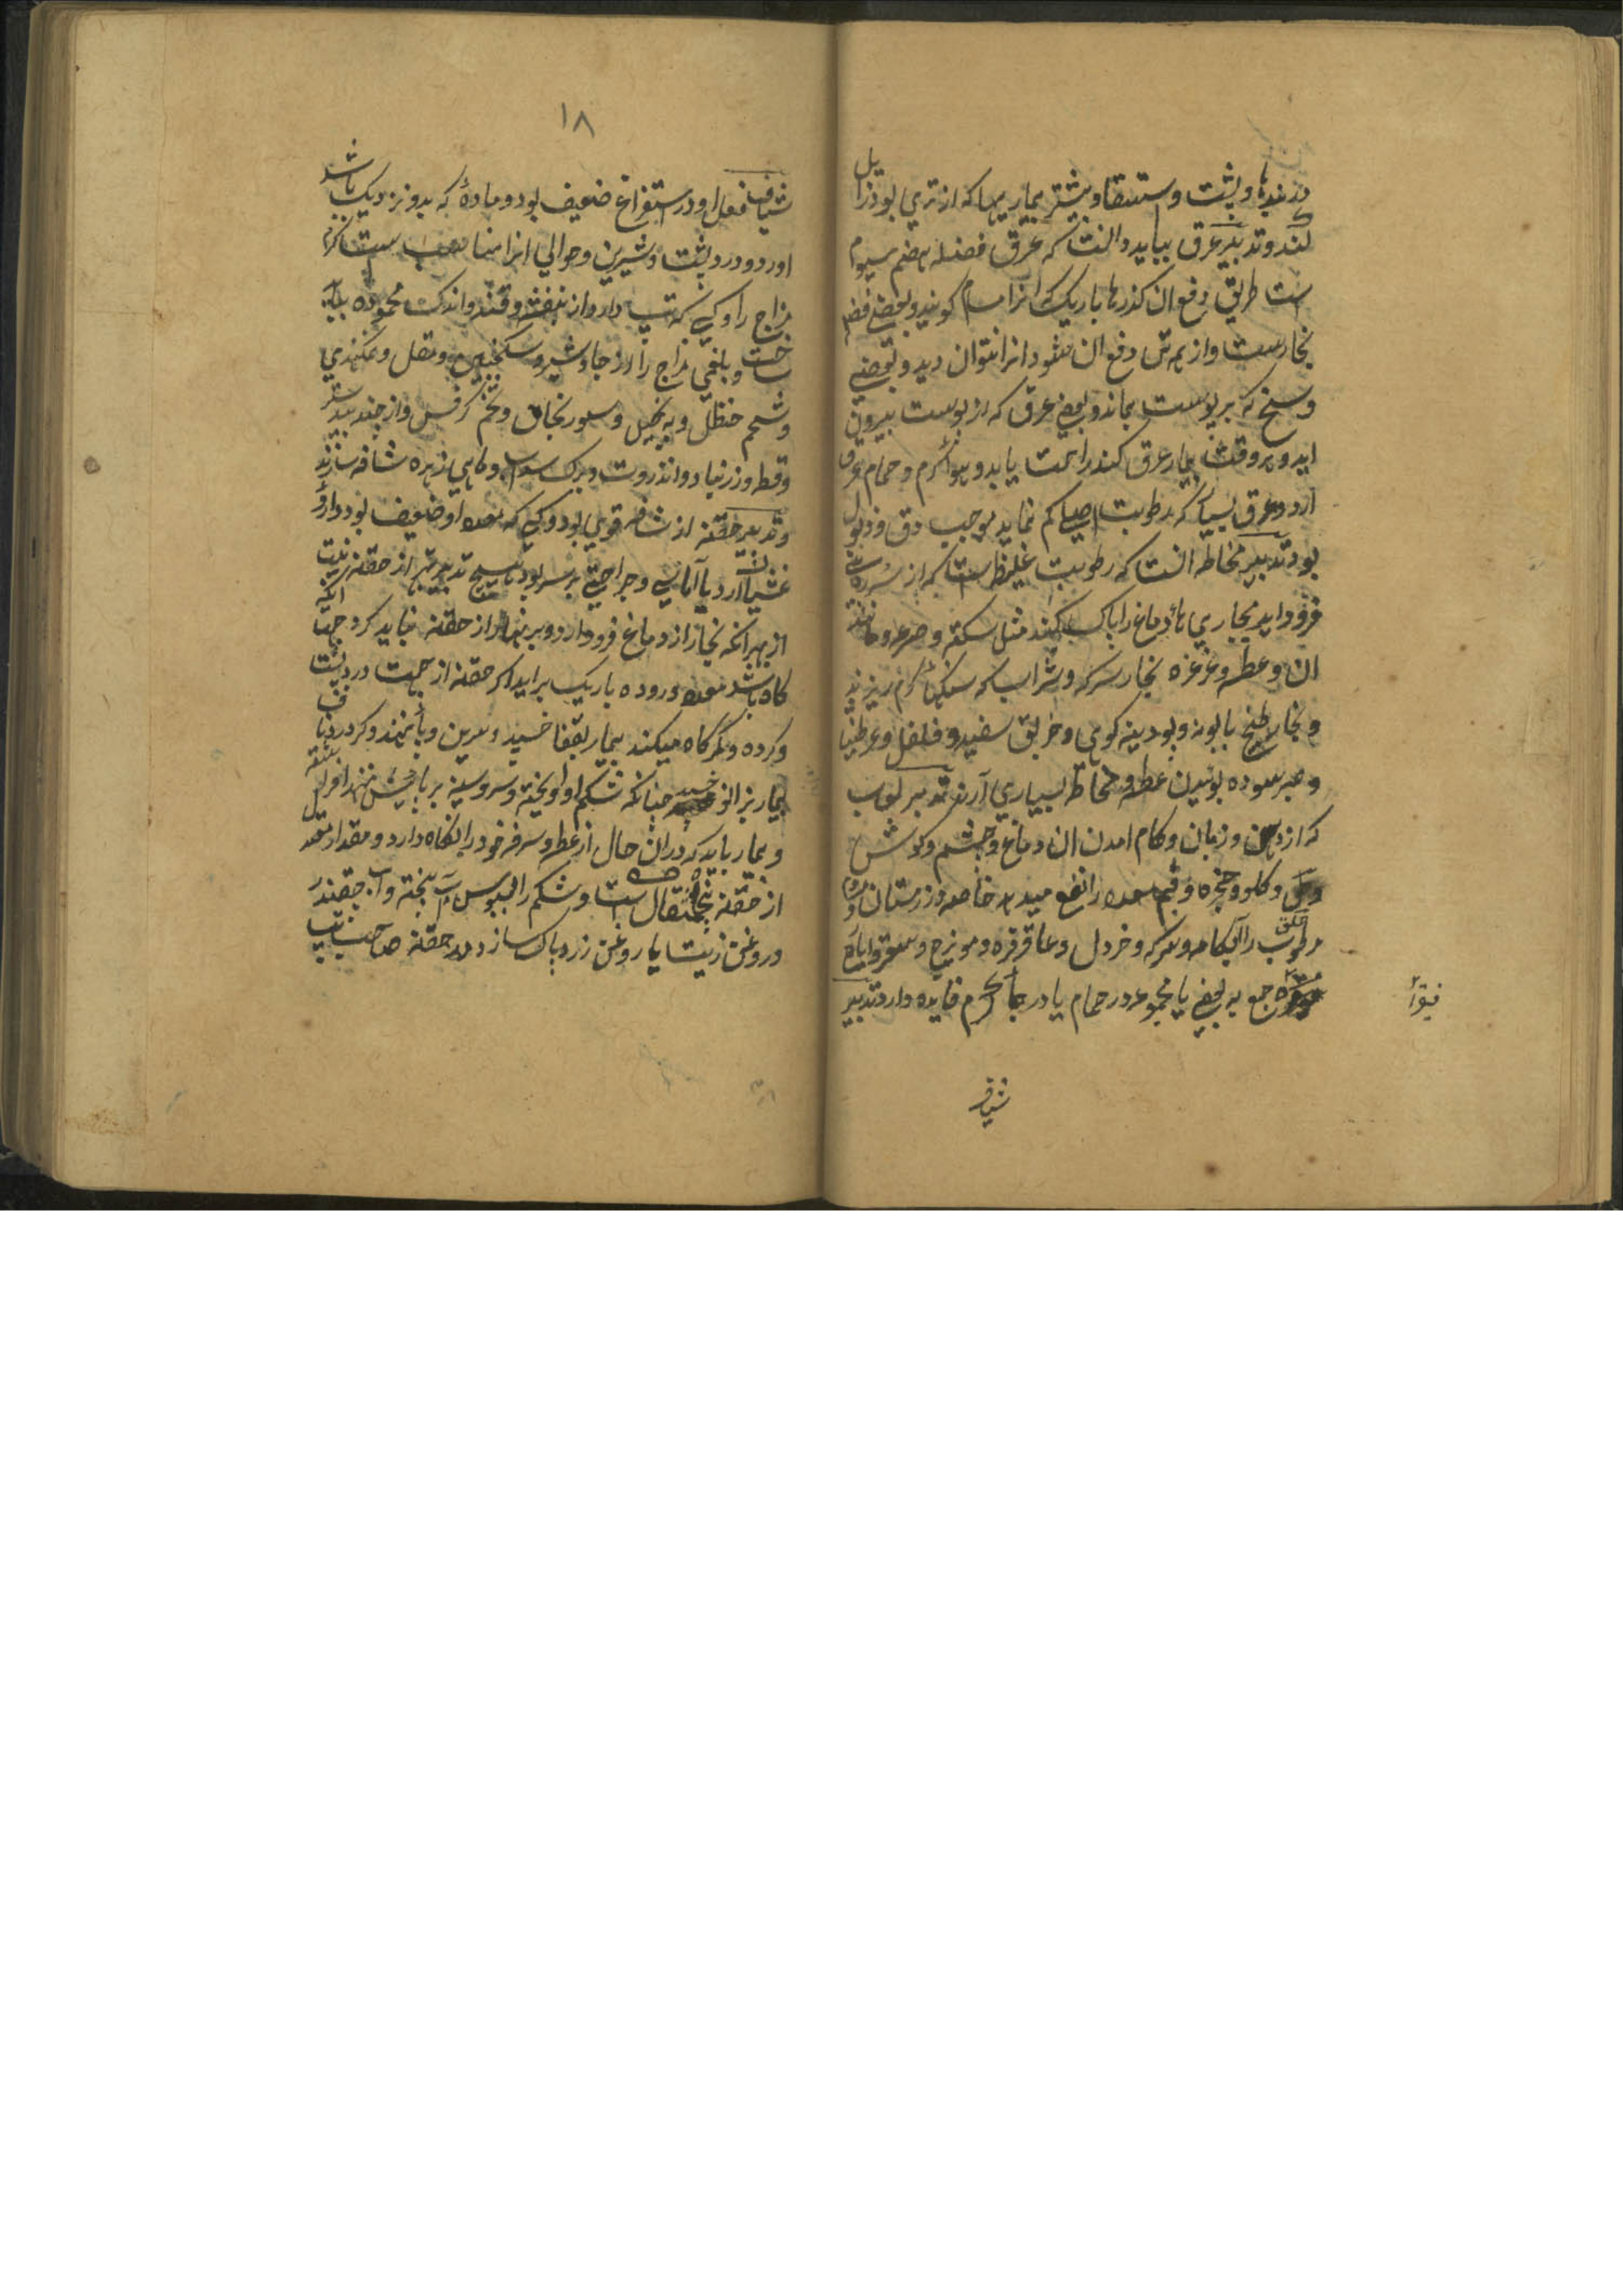 دندها و پشت و استسقا و بیشتر بیماریها که از تری بود زایل
کند و تدبیر عرق بباید دانست که عرق فضله هضم سیوم
است طریق دفع ان گذرها باریک که انرا مسام گویند و بعضی فضله
بخارست و از همه تن دفع ان میشود انرا نتوان دید و بعضی
وسخ که بر پوست بماند و بعضی عرق که از پوست بیرون
اید و هر وقت بیمار عرق کند راحت یابد و هوا گرم و حمام عرق
آرد و عرق بسیار که رطوبت اصلی کم نماید موجب دق و ذبول
بود تدبیر مخاطه انست که رطوبت غلیظ است که از
فرود اید مجاری هاء دماغ را پاک کند مثل سکته و صرع و مانند
ان و عطسه و غرغره بخار سرکه و شراب که سنگ گرم ریزند
و بخار طبخ بابونه و پودینه کوهی و خربق سفید و فلفل و عرطنیثا
و صبر سوده بوئیدن عطسه و مخاط بسیاری آرند تدبیر لعاب
که از دهن و زبان و کام امدن ان دماغ و چشم و گوش
و حلق و گلو و حنجره و فم معده را نفع میدهد خاصه در زمستان
مرطوب را آبکامه و سرکه و خردل و عاقرقرحا و مویزج و سعتر و ایارج
جمع به بعضی یا مجموع در حمام یا در جاء گرم فایده دارد تدبیر
فیقرا
شیاف
۱۸
شیاف فعل او در استفراغ ضعیف بود و ماده که بدو نزدیک باشد
اورد و درد پشت و شیرین و حوالی انرا مناسب است گرم
مزاج را و کسی که تب دارد از بنفشه و قند و اندک محموده باید
ساخت و بلغمی مزاج را از جاوشیر و سکبینج و مقل و نمک هندی
و شحم حنظل و زنجبیل و سورنجان و تخم کرفس و از جندبیدستر
و قسط و زرنباد و انزروت و برگ سداب و ماهی زهره شافه سازند
و تدبیر حقنه از شافه قوی بود و کسی که معده او ضعیف بود و دارو
غشیان آرد یا آماسی و جراحتی بر سر بود هیچ تدبیر بهتر از حقنه نیست
از بهر انکه بخار از دماغ فرود ارد و بر نهار از حقنه نباید کرد جهت انکه
گاه باشد معده و روده باریک براید اگر حقنه از جهت درد پشت
و گرده و کمرگاه میکند بیمار بقفا خسپد و سرین و پا نهند و گر درد ناف
بیمار بزانو خسپد چنانکه شکم او اویخته و سر و سینه بر بالش نهد
و بیمار باید که دران حال از عطسه و سرفه خود را نگاه دارد و مقدار معتدل
از حقنه پنجاه مثقال است و شکم را بسبوس آب پخته و آب چقندر
و روغن زیت یا روغن زرد پاک سازد و در حقنه صاحب تب